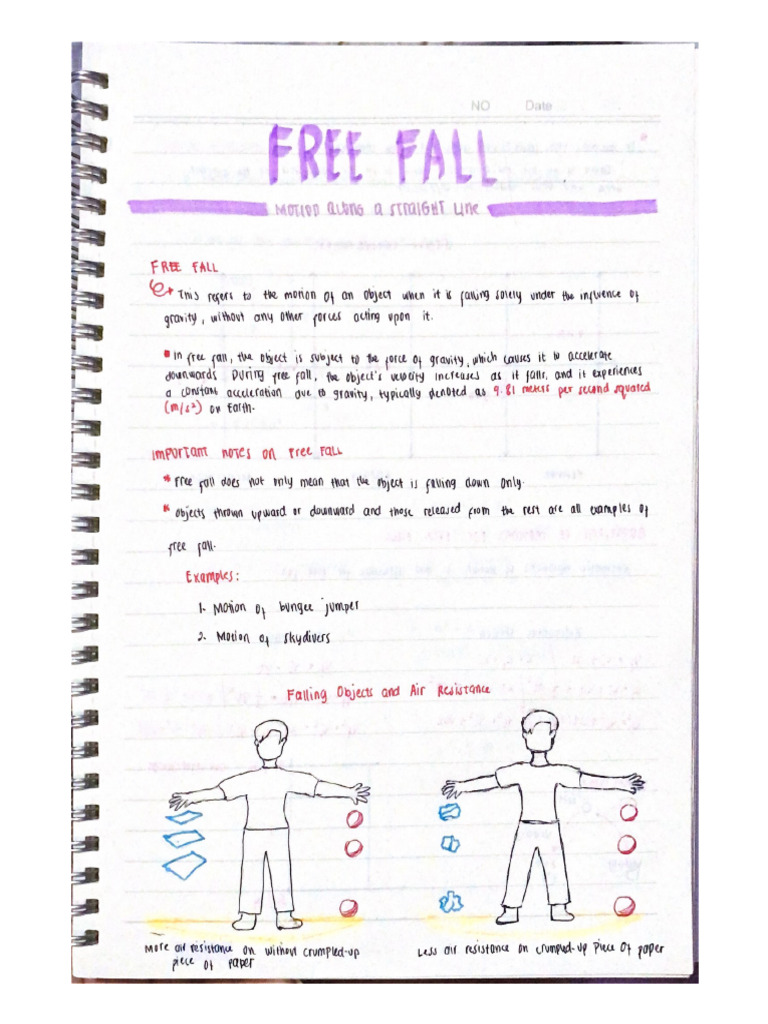 NO Date
FREE FALL
MOTION ALONG A STRAIGHT LINE
FREE FALL
This refers to the motion of an object when it is falling solely under the influence of
gravity, without any other forces acting upon it.
In free fall, the object is subject to the force of gravity, which causes it to accelerate
downwards During free fall, the object's velocity increases as it falls, and it experiences
a constant acceleration due to gravity, typically denoted as 9.81 meters per second squared
(m/s²) on Earth.
IMPORTANT NOTES ON FREE FALL
* Free fall does not only mean that the object is falling down only.
* Objects thrown upward or downward and those released from the rest are all examples of
free fall.
Examples:
1. Motion of bungee jumper
2. Motion of skydivers
Falling Objects and Air Resistance
More air resistance on without crumpled-up
piece of paper
Less air resistance on crumpled-up piece of paper